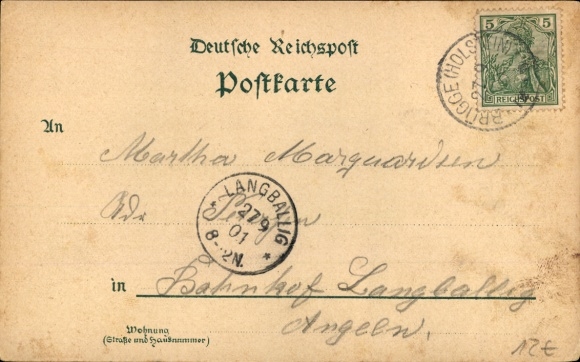 Deutsche Reichspost
Postkarte
5 5
REICHSPOST
BRÜGGE (HOLST)
An
Martha Marquardsen
LANGBALLIG
27/9
01
8-12N.
in Bahnhof Langballig
Angeln.
Wohnung
(Straße und Hausnummer)
12€